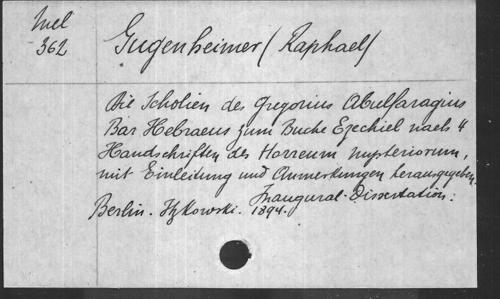 Mel
362
Gugenheimer (Raphael)
Die Scholien des Gregorius Abulfaragius
Bar Hebraeus zum Buche Ezechiel nach 4
Handschriften des Horreum mysteriorum,
mit Einleitung und Anmerkungen herausgegeben.
Inaugural-Dissertation:
Berlin. Itzkowski. 1894.